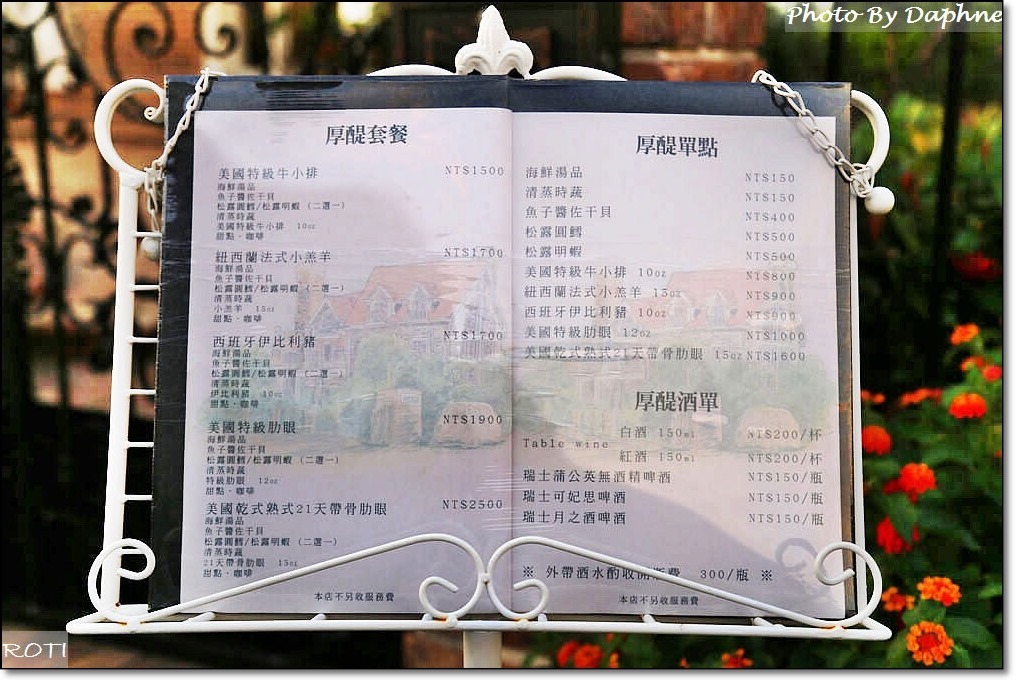 Photo By Daphne
厚醍套餐
美國特級牛小排 NT$1500
海鮮湯品
魚子醬佐干貝
松露圓鱈/松露明蝦 (二選一)
清蒸時蔬
美國特級牛小排 10oz
甜點、咖啡
紐西蘭法式小羔羊 NT$1700
海鮮湯品
魚子醬佐干貝
松露圓鱈/松露明蝦 (二選一)
清蒸時蔬
小羔羊 15oz
甜點、咖啡
西班牙伊比利豬 NT$1700
海鮮湯品
魚子醬佐干貝
松露圓鱈/松露明蝦 (二選一)
清蒸時蔬
伊比利豬 10oz
甜點、咖啡
美國特級肋眼 NT$1900
海鮮湯品
魚子醬佐干貝
松露圓鱈/松露明蝦 (二選一)
清蒸時蔬
特級肋眼 12oz
甜點、咖啡
美國乾式熟式21天帶骨肋眼 NT$2500
海鮮湯品
魚子醬佐干貝
松露圓鱈/松露明蝦 (二選一)
清蒸時蔬
21天帶骨肋眼 15oz
甜點、咖啡
本店不另收服務費
厚醍單點
海鮮湯品 NT$150
清蒸時蔬 NT$150
魚子醬佐干貝 NT$400
松露圓鱈 NT$500
松露明蝦 NT$500
美國特級牛小排 10oz NT$800
紐西蘭法式小羔羊 15oz NT$900
西班牙伊比利豬 10oz NT$900
美國特級肋眼 12oz NT$1000
美國乾式熟式21天帶骨肋眼 15oz NT$1600
厚醍酒單
Table wine
白酒 150ml NT$200/杯
紅酒 150ml NT$200/杯
瑞士蒲公英無酒精啤酒 NT$150/瓶
瑞士可妃思啤酒 NT$150/瓶
瑞士月之酒啤酒 NT$150/瓶
※ 外帶酒水酌收開瓶費 300/瓶 ※
本店不另收服務費
ROTI